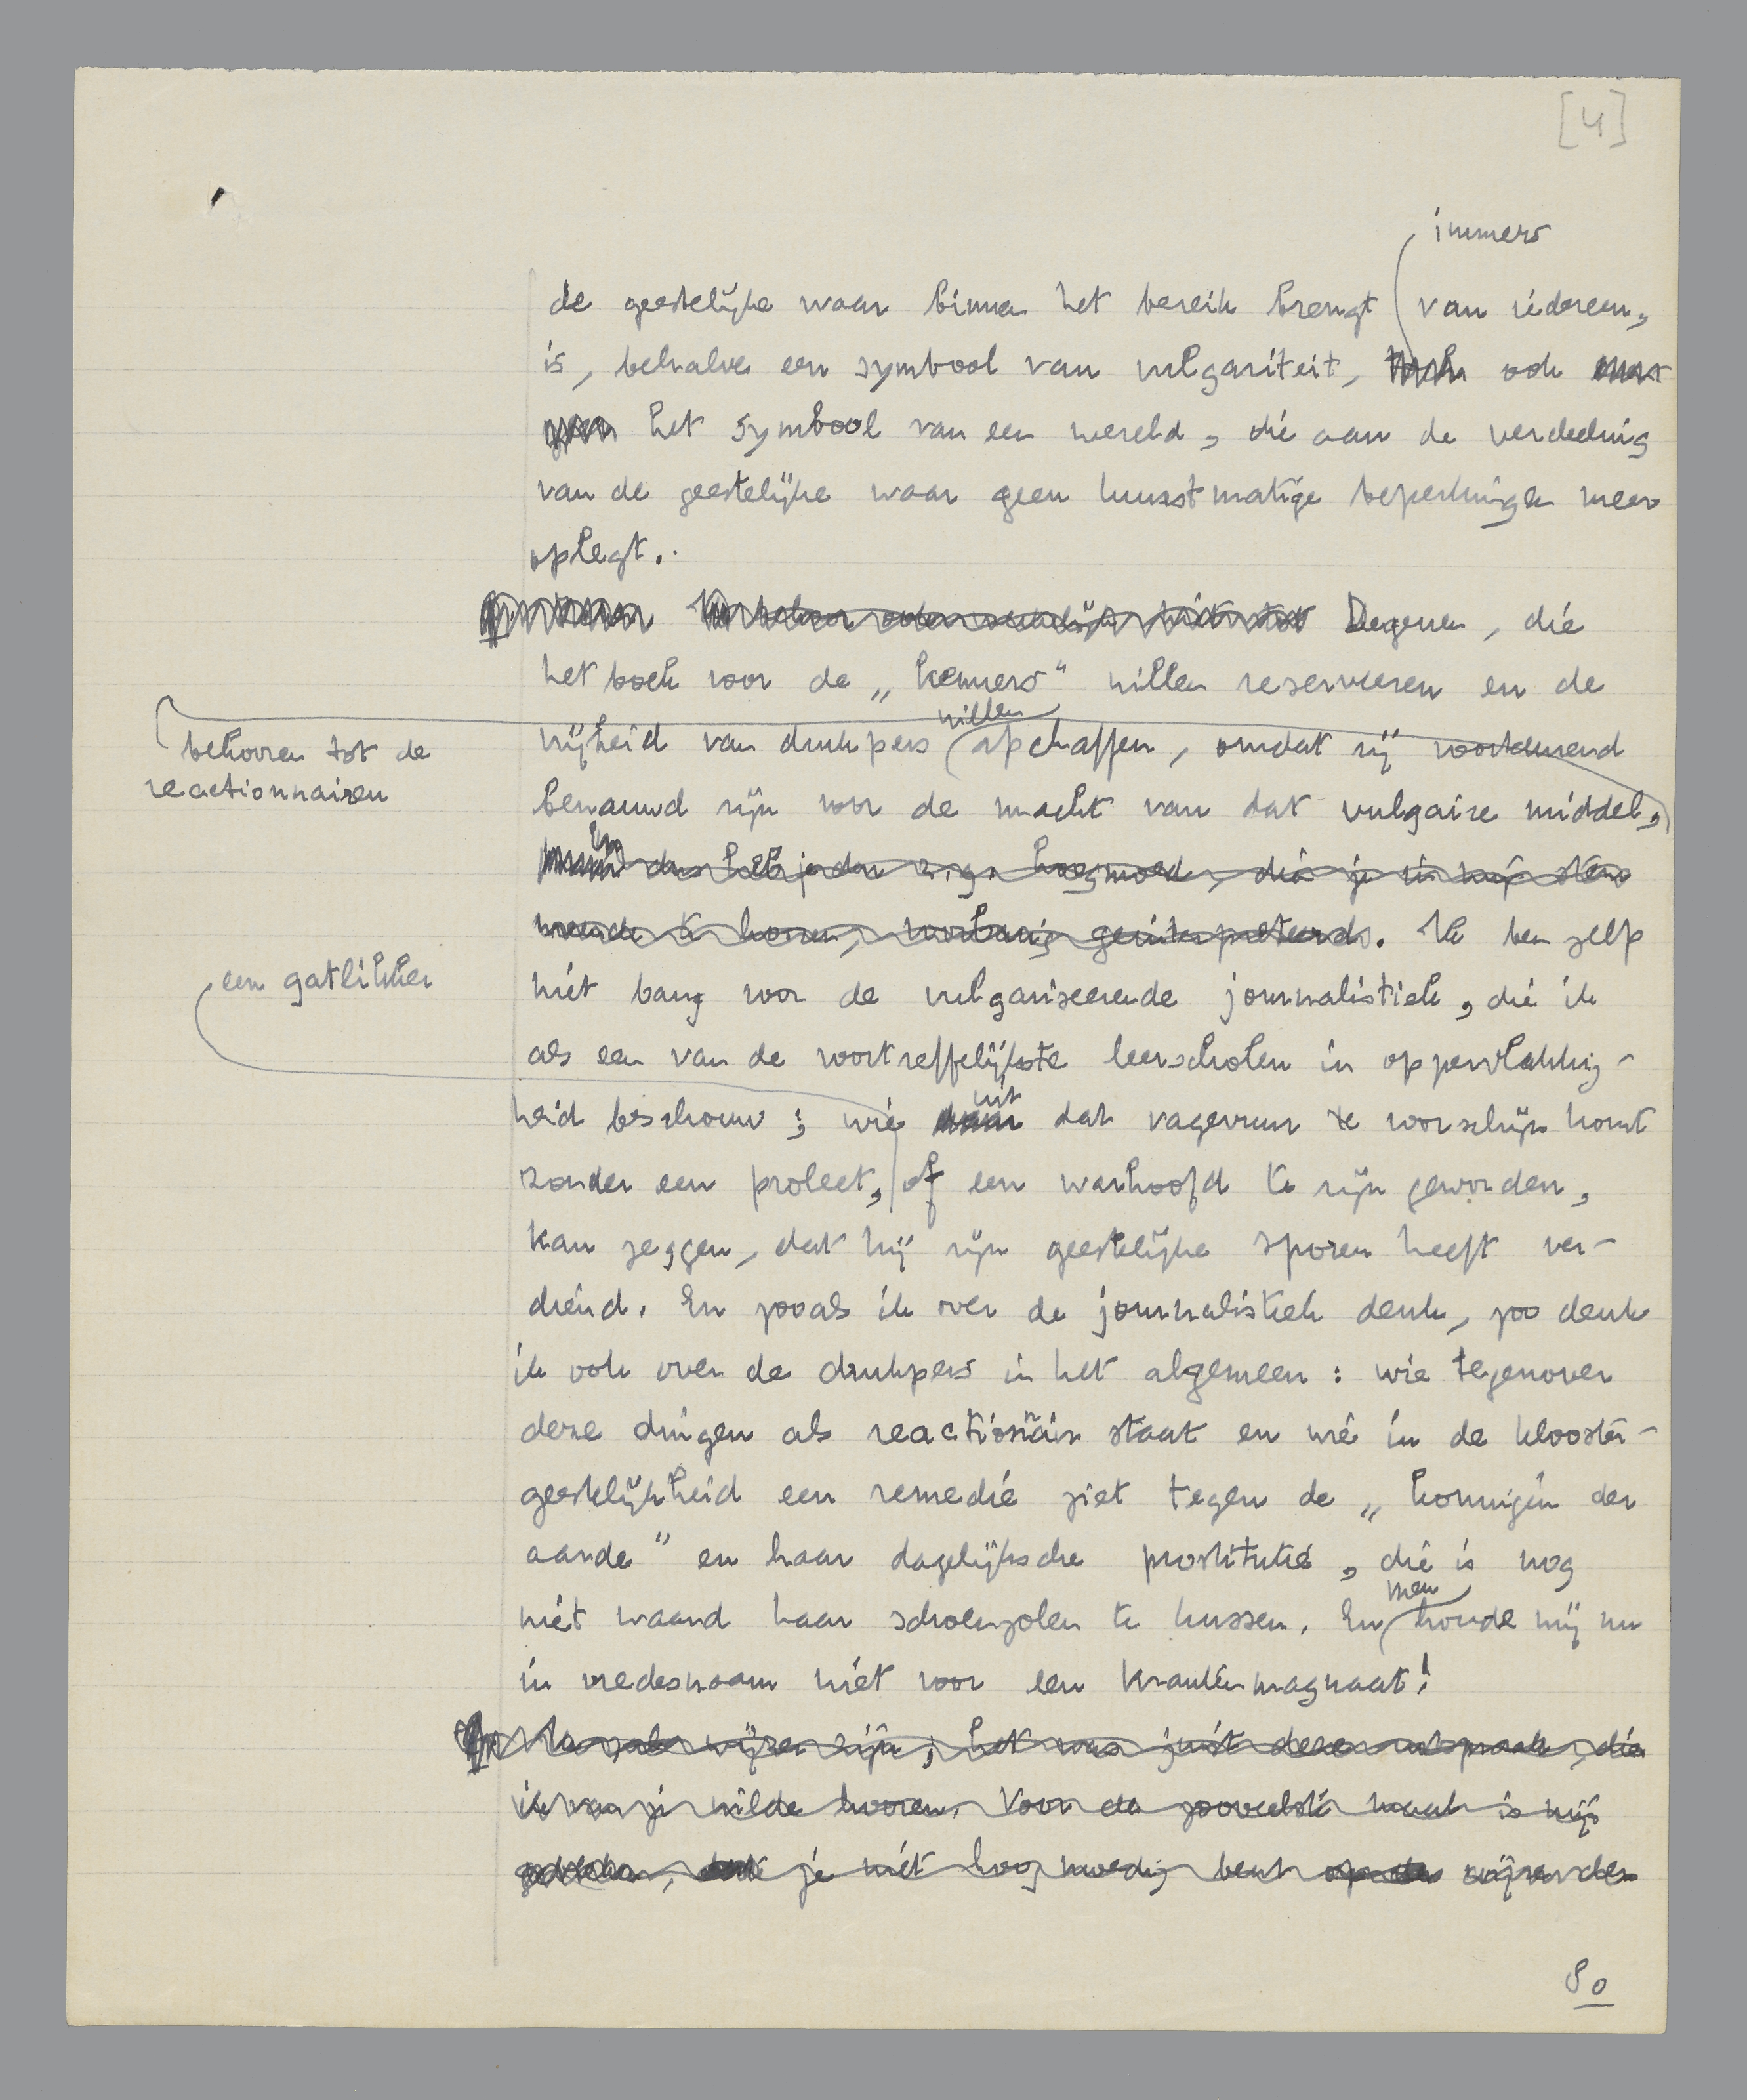 [4]
immers
de geestelijke waar binnen het bereik brengt van iedereen,
is, behalve een symbool van vulgariteit, ook
het symbool van een wereld, die aan de verdeeling
van de geestelijke waar geen kunstmatige beperkingen meer
oplegt.
Degenen, die
het boek voor de „kenners" willen reserveeren en de
willen
vrijheid van drukpers afschaffen, omdat zij voortdurend
behooren tot de
reactionnairen
benauwd zijn voor de macht van dat vulgaire middel,
dus heb je den z.g. hoogmoed, die je in mijn stem
meende te hooren, voorbarig geïnterpreteerd. Ik ben zelf
een gatlikker
niet bang voor de vulgariseerende journalistiek, die ik
als een van de voortreffelijkste leerscholen in oppervlakkig-
heid beschouw; wie uit dat vagevuur te voorschijn komt
zonder een proleet, of een warhoofd te zijn geworden,
kan zeggen, dat hij zijn geestelijke sporen heeft ver-
diend. En zooals ik over de journalistiek denk, zoo denk
ik ook over de drukpers in het algemeen: wie tegenover
deze dingen als reactionnair staat en wie in de klooster-
geestelijkheid een remedie ziet tegen de „koningin der
aarde" en haar dagelijksche prostitutie, die is nog
niet waard haar schoenzolen te kussen. En houde mij nu
men
in vredesnaam niet voor een krantenmagnaat!
wijzen zijn; het was juist deze uitspraak, die
ik van je wilde hooren. Voor de zooveelste maal is mij
je niet hoogmoedig bent
80